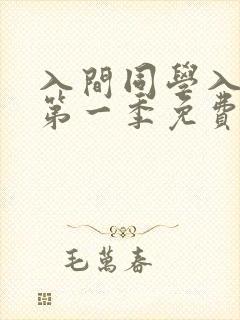 入間同學入
第一季免費
毛萬春